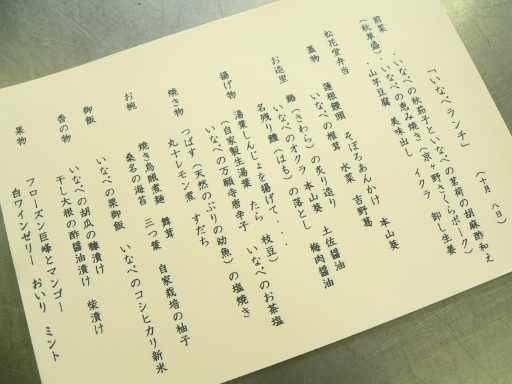 「いなべランチ」 （十月 八日）
前菜 ・いなべの秋茄子といなべの茗荷の胡麻酢和え
（秋草盛） ・いなべの恵み焼き（京ヶ野さくらポーク） 卸し生姜
・山芋豆腐 美味出し イクラ
松花堂弁当
蓋物 蓮根饅頭 そぼろあんかけ 本山葵
いなべの椎茸 水菜 吉野葛
お造里 鰆（さわら）の炙り造り 土佐醤油
いなべのオクラ 本山葵
名残り鱧（はも）の落とし 梅肉醤油
揚げ物 湯葉しんじょを揚げて、・・
（自家製生湯葉 たら 枝豆）
いなべの万願寺唐辛子 いなべのお茶塩
焼き物 つばす（天然のぶりの幼魚）の塩焼き
丸十レモン煮 すだち
お椀 焼き烏賊煮麺 舞茸 自家栽培の柚子
桑名の海苔 三つ葉
御飯 いなべの栗御飯 いなべのコシヒカリ新米
香の物 いなべの胡瓜の糠漬け 柴漬け
干し大根の酢醤油漬け
果物 フローズン巨峰とマンゴー
白ワインゼリー おいり ミント